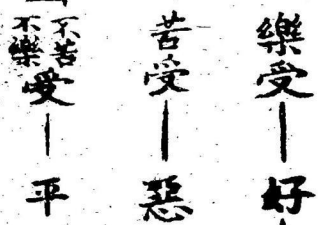 樂受—好
苦受—惡
不苦不樂受—平